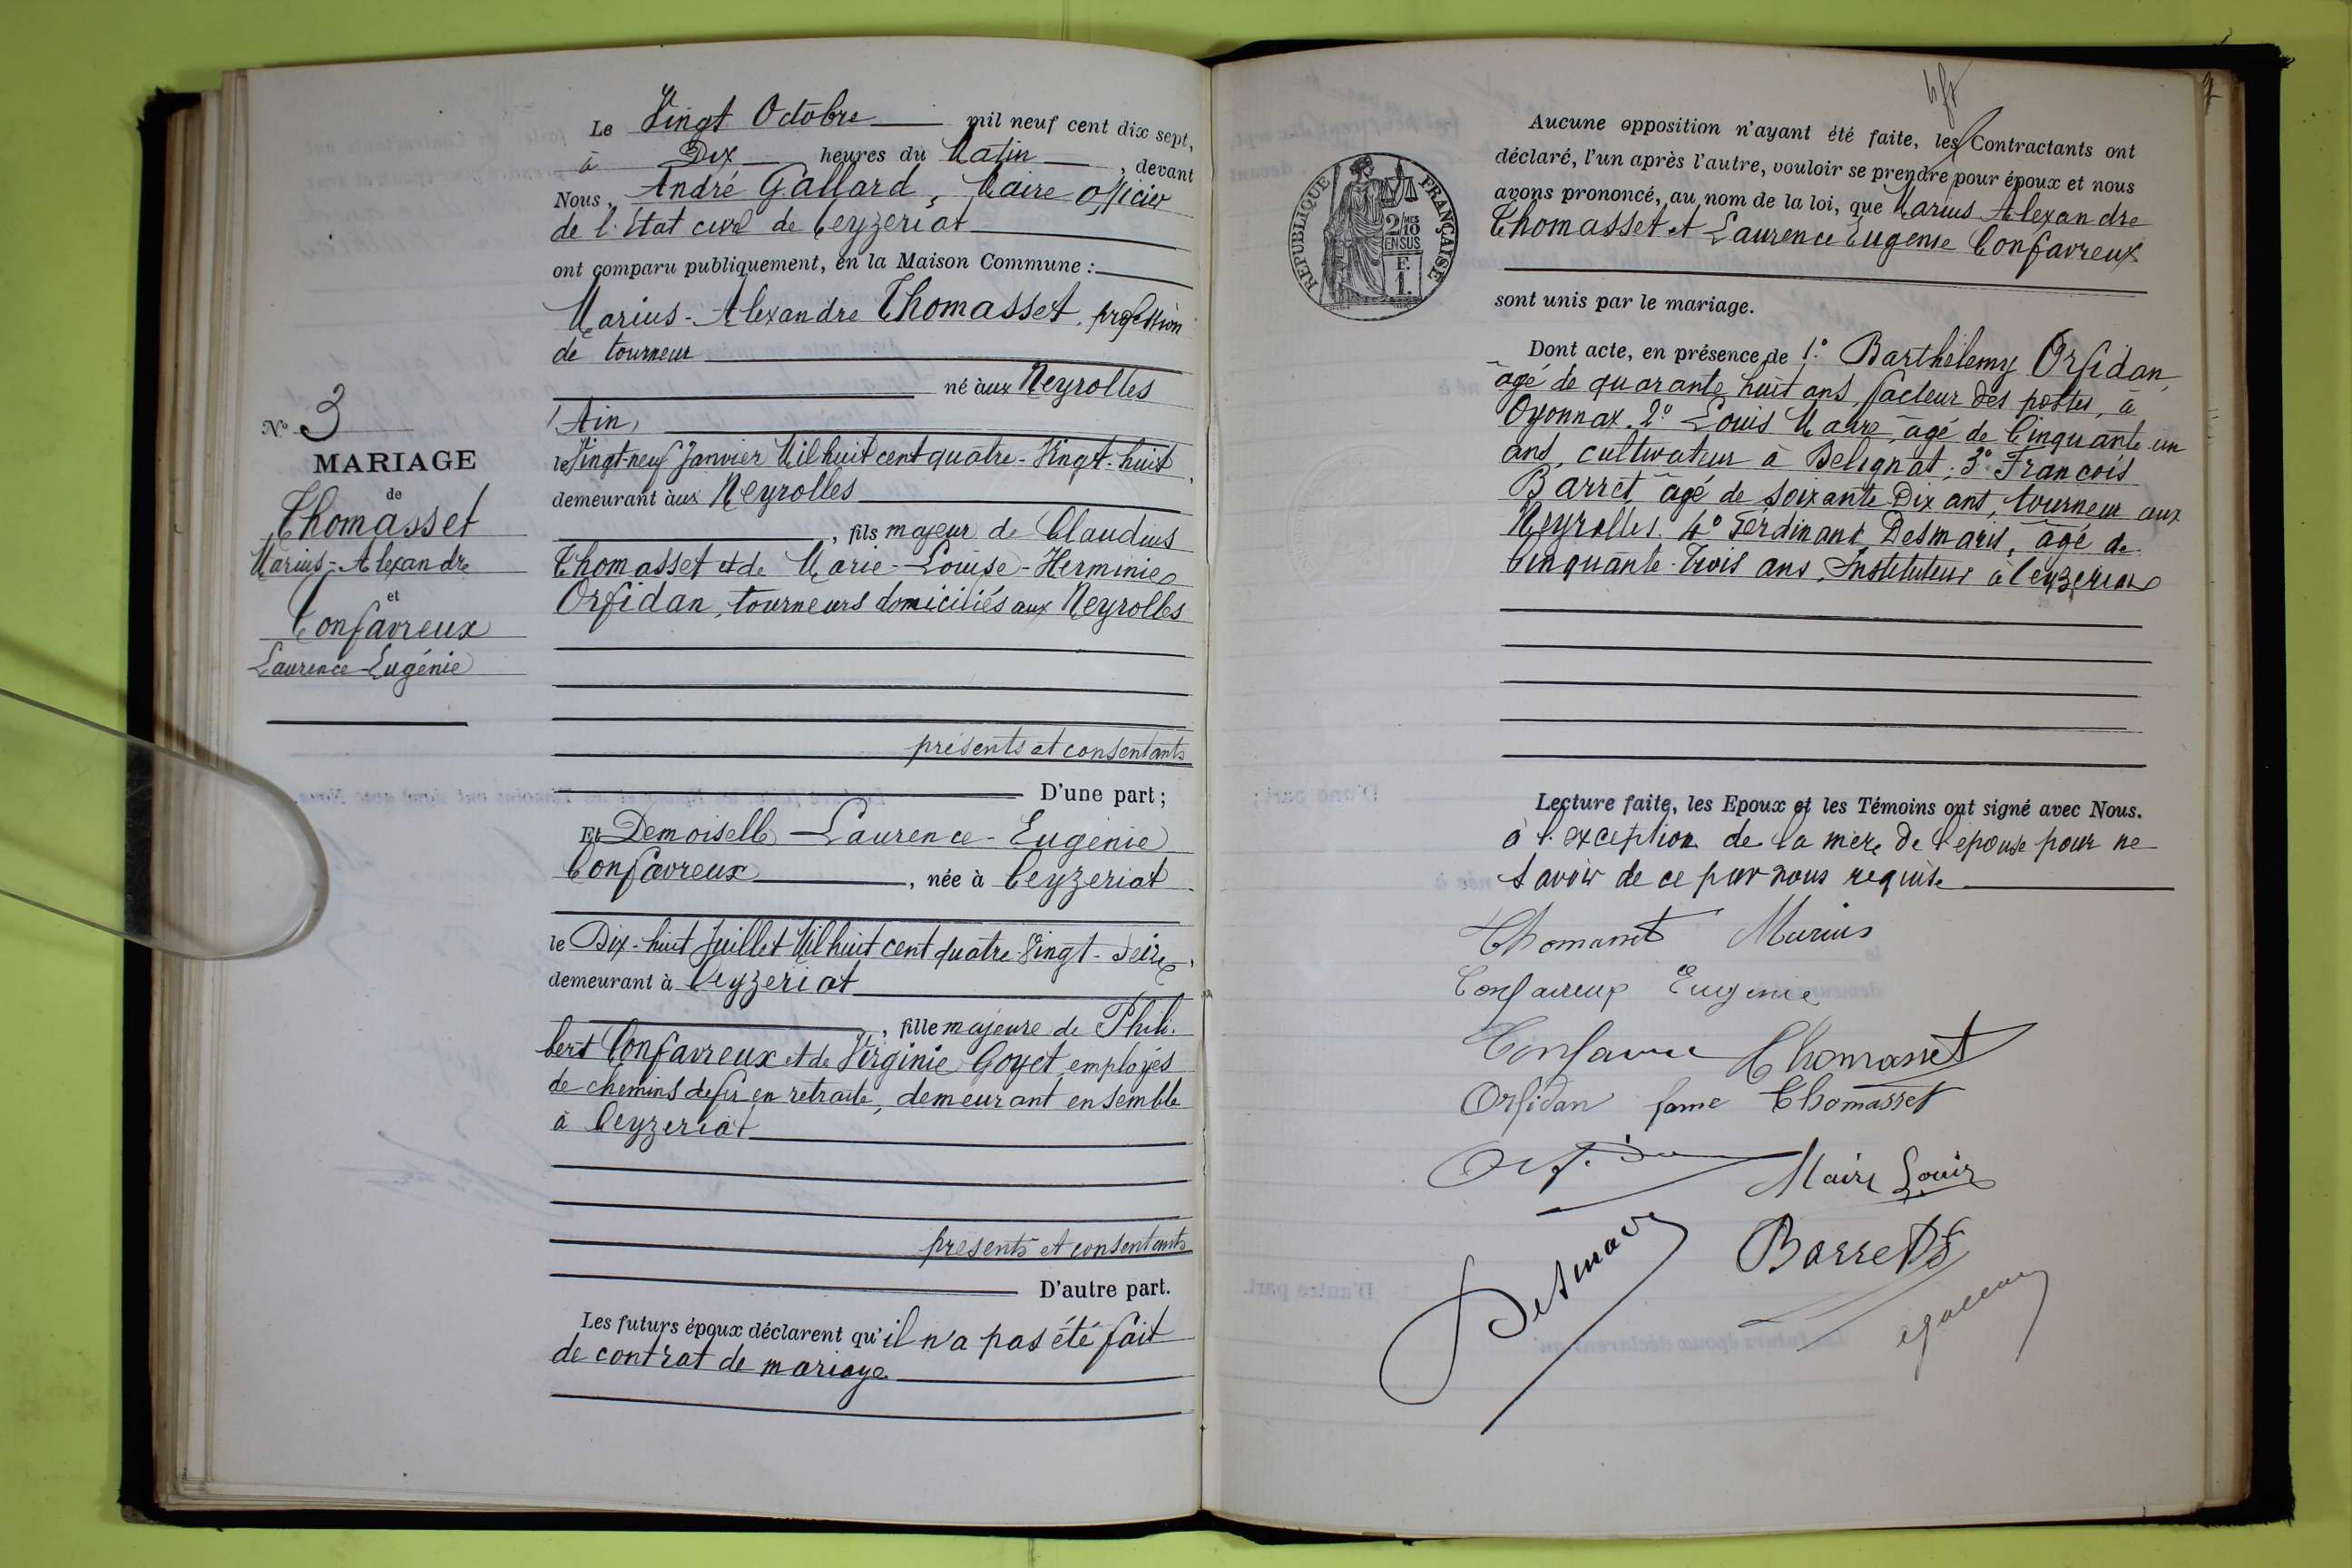 N° 3
MARIAGE
de
Thomasset
Marius-Alexandre
et
Confavreux
Laurence-Eugénie
Le Vingt Octobre mil neuf cent dix sept,
à Dix heures du Matin, devant
Nous, André Gallard, Maire officier
de l'État civil de Ceyzeriat
ont comparu publiquement, en la Maison Commune :
Marius-Alexandre Thomasset, profession
de tourneur
né aux Neyrolles
(Ain)
le Vingt-neuf Janvier Mil huit cent quatre-Vingt-huit,
demeurant aux Neyrolles
, fils majeur de Claudius
Thomasset et de Marie-Louise-Herminie
Orfidan, tourneurs domiciliés aux Neyrolles
présents et consentants
D'une part ;
Et Demoiselle Laurence-Eugénie
Confavreux, née à Ceyzeriat
le Dix-huit Juillet Mil huit cent quatre-Vingt-Seize,
demeurant à Ceyzeriat
, fille majeure de Phili-
bert Confavreux et de Virginie Goyet employés
de chemins de fer en retraite, demeurant ensemble
à Ceyzeriat
présents et consentants
D'autre part.
Les futurs époux déclarent qu'il n'a pas été fait
de contrat de mariage
REPUBLIQUE FRANÇAISE
2/10
MES
EN SUS
F.
1.
Aucune opposition n'ayant été faite, les Contractants ont
déclaré, l'un après l'autre, vouloir se prendre pour époux et nous
avons prononcé, au nom de la loi, que Marius Alexandre
Thomasset et Laurence Eugenie Confavreux
sont unis par le mariage.
Dont acte, en présence de 1.° Barthélemy Orfidan,
âgé de quarante huit ans, facteur des postes, à
Oyonnax. 2° Louis Maire, âgé de Cinquante un
ans, cultivateur à Belignat, 3° Francois
Barret, âgé de soixante Dix ans, tourneur aux
Neyrolles. 4° Ferdinand Desmaris, âgé de
Cinquante-trois ans, Instituteur à Ceyzeriat
Lecture faite, les Epoux et les Témoins ont signé avec Nous.
à l'exception de la mère de l'epouse pour ne
savoir de ce par nous requise
Thomasset Marius
Confavreux Eugenie
Confavreux Thomasset
Orfidan fame Thomasset
Orfidan
Maire Louis
Desmaris
Barret F